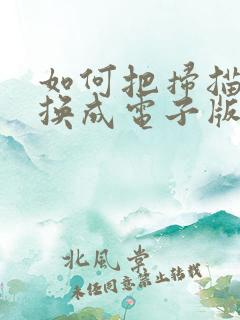 如何把掃描
換成電子版
北風棠
未径同意禁止转载